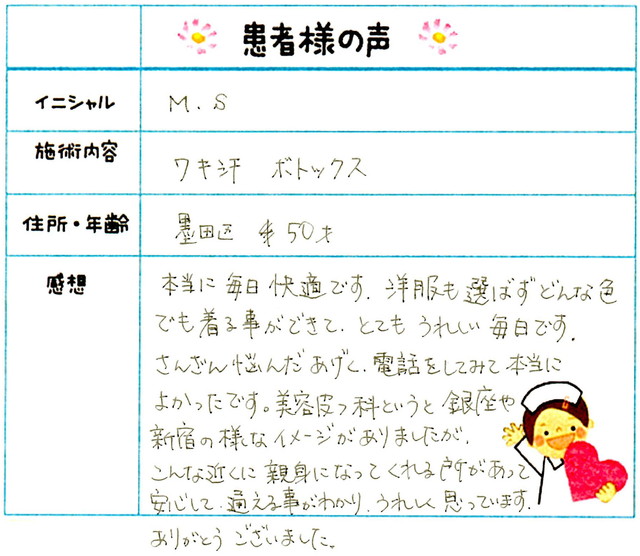 患者様の声
イニシャル M.S
施術内容 ワキ汗 ボトックス
住所・年齢 墨田区 50才
感想
本当に毎日快適です。洋服も選ばずどんな色
でも着る事ができて、とてもうれしい毎日です。
さんざん悩んだあげく、電話をしてみて本当に
よかったです。美容皮フ科というと銀座や
新宿の様なイメージがありましたが、
こんな近くに親身になってくれる所があって
安心して、通える事がわかり、うれしく思っています。
ありがとうございました。